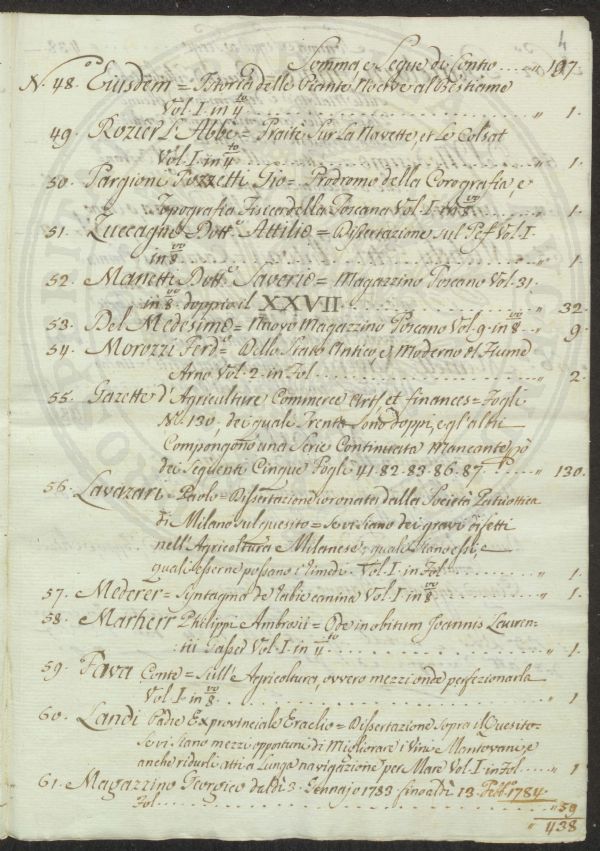 4
Somma, e Segue di Contro ..... " 197.
N.º 48. Eiusdem = Istoria delle Piante Nocive al Bestiame
Vol. I. in 4.to ..... " 1.
49. Rozier L'Abbe = Traite Sur La Navette, et Le Colsat
Vol. I. in 4.to ..... " 1.
50. Targioni Tozzetti Gio = Prodromo della Corografia, e
Topografia Fisica della Toscana Vol. I. in 8.vo ..... " 1.
51. Zuccagni Dott. Attilio = Dissertazione Sul Vol. I.
in 8.vo ..... " 1.
52. Manetti Dott. Saverio = Magazzino Toscano Vol. 31.
in 8.vo doppio il XXVII ..... " 32.
53. Del Medesimo = Nuovo Magazzino Toscano Vol. 9. in 8.vo .. " 9.
54. Morozzi Ferd.º Dello Stato Antico, e Moderno del Fiume
Arno Vol. 2. in Fol. ..... " 2.
55. Gazette d'Agriculture Commerce Arts et finances = Fogli
N.º 130, dei quali Trenta Sono doppi, e gl'altri
Compongono una Serie Continuata Mancante però
dei Seguenti Cinque Fogli 41. 82. 83. 86. 87. ..... " 130.
56. Lavazari = Paolo = Dissertazione Coronata dalla Società Patriottica
di Milano sul quesito = Se vi siano dei gravi difetti
nell'Agricoltura Milanese; quali siano essi e
quali esserne possano i rimedi. Vol. I. in Fol. ..... " 1.
57. Mederer = Syntagma de Rabie canina Vol. I. in 8.vo ..... " 1.
58. Marherr Philippi Ambrosii = Ode in obitum Joannis Lauren-
tii Gasser Vol. I. in 4.to ..... " 1.
59. Fava Conte = Sull'Agricoltura, ovvero mezzi onde perfezionarla
Vol. I. in 8.vo ..... " 1
60. Landi Padre Exprovinciale Eraclio = Dissertazione Sopra il Quesito =
Se vi siano mezzi opportuni di Migliorare i Vini Mantovani, e
anche ridurli atti a Lunga navigazione per Mare Vol. I. in Fol. ..... " 1
61. Magazzino Georgico dal dì 3. Gennajo 1783 sino al dì 13. Feb.º 1784.
Fol. ..... " 59
" 438